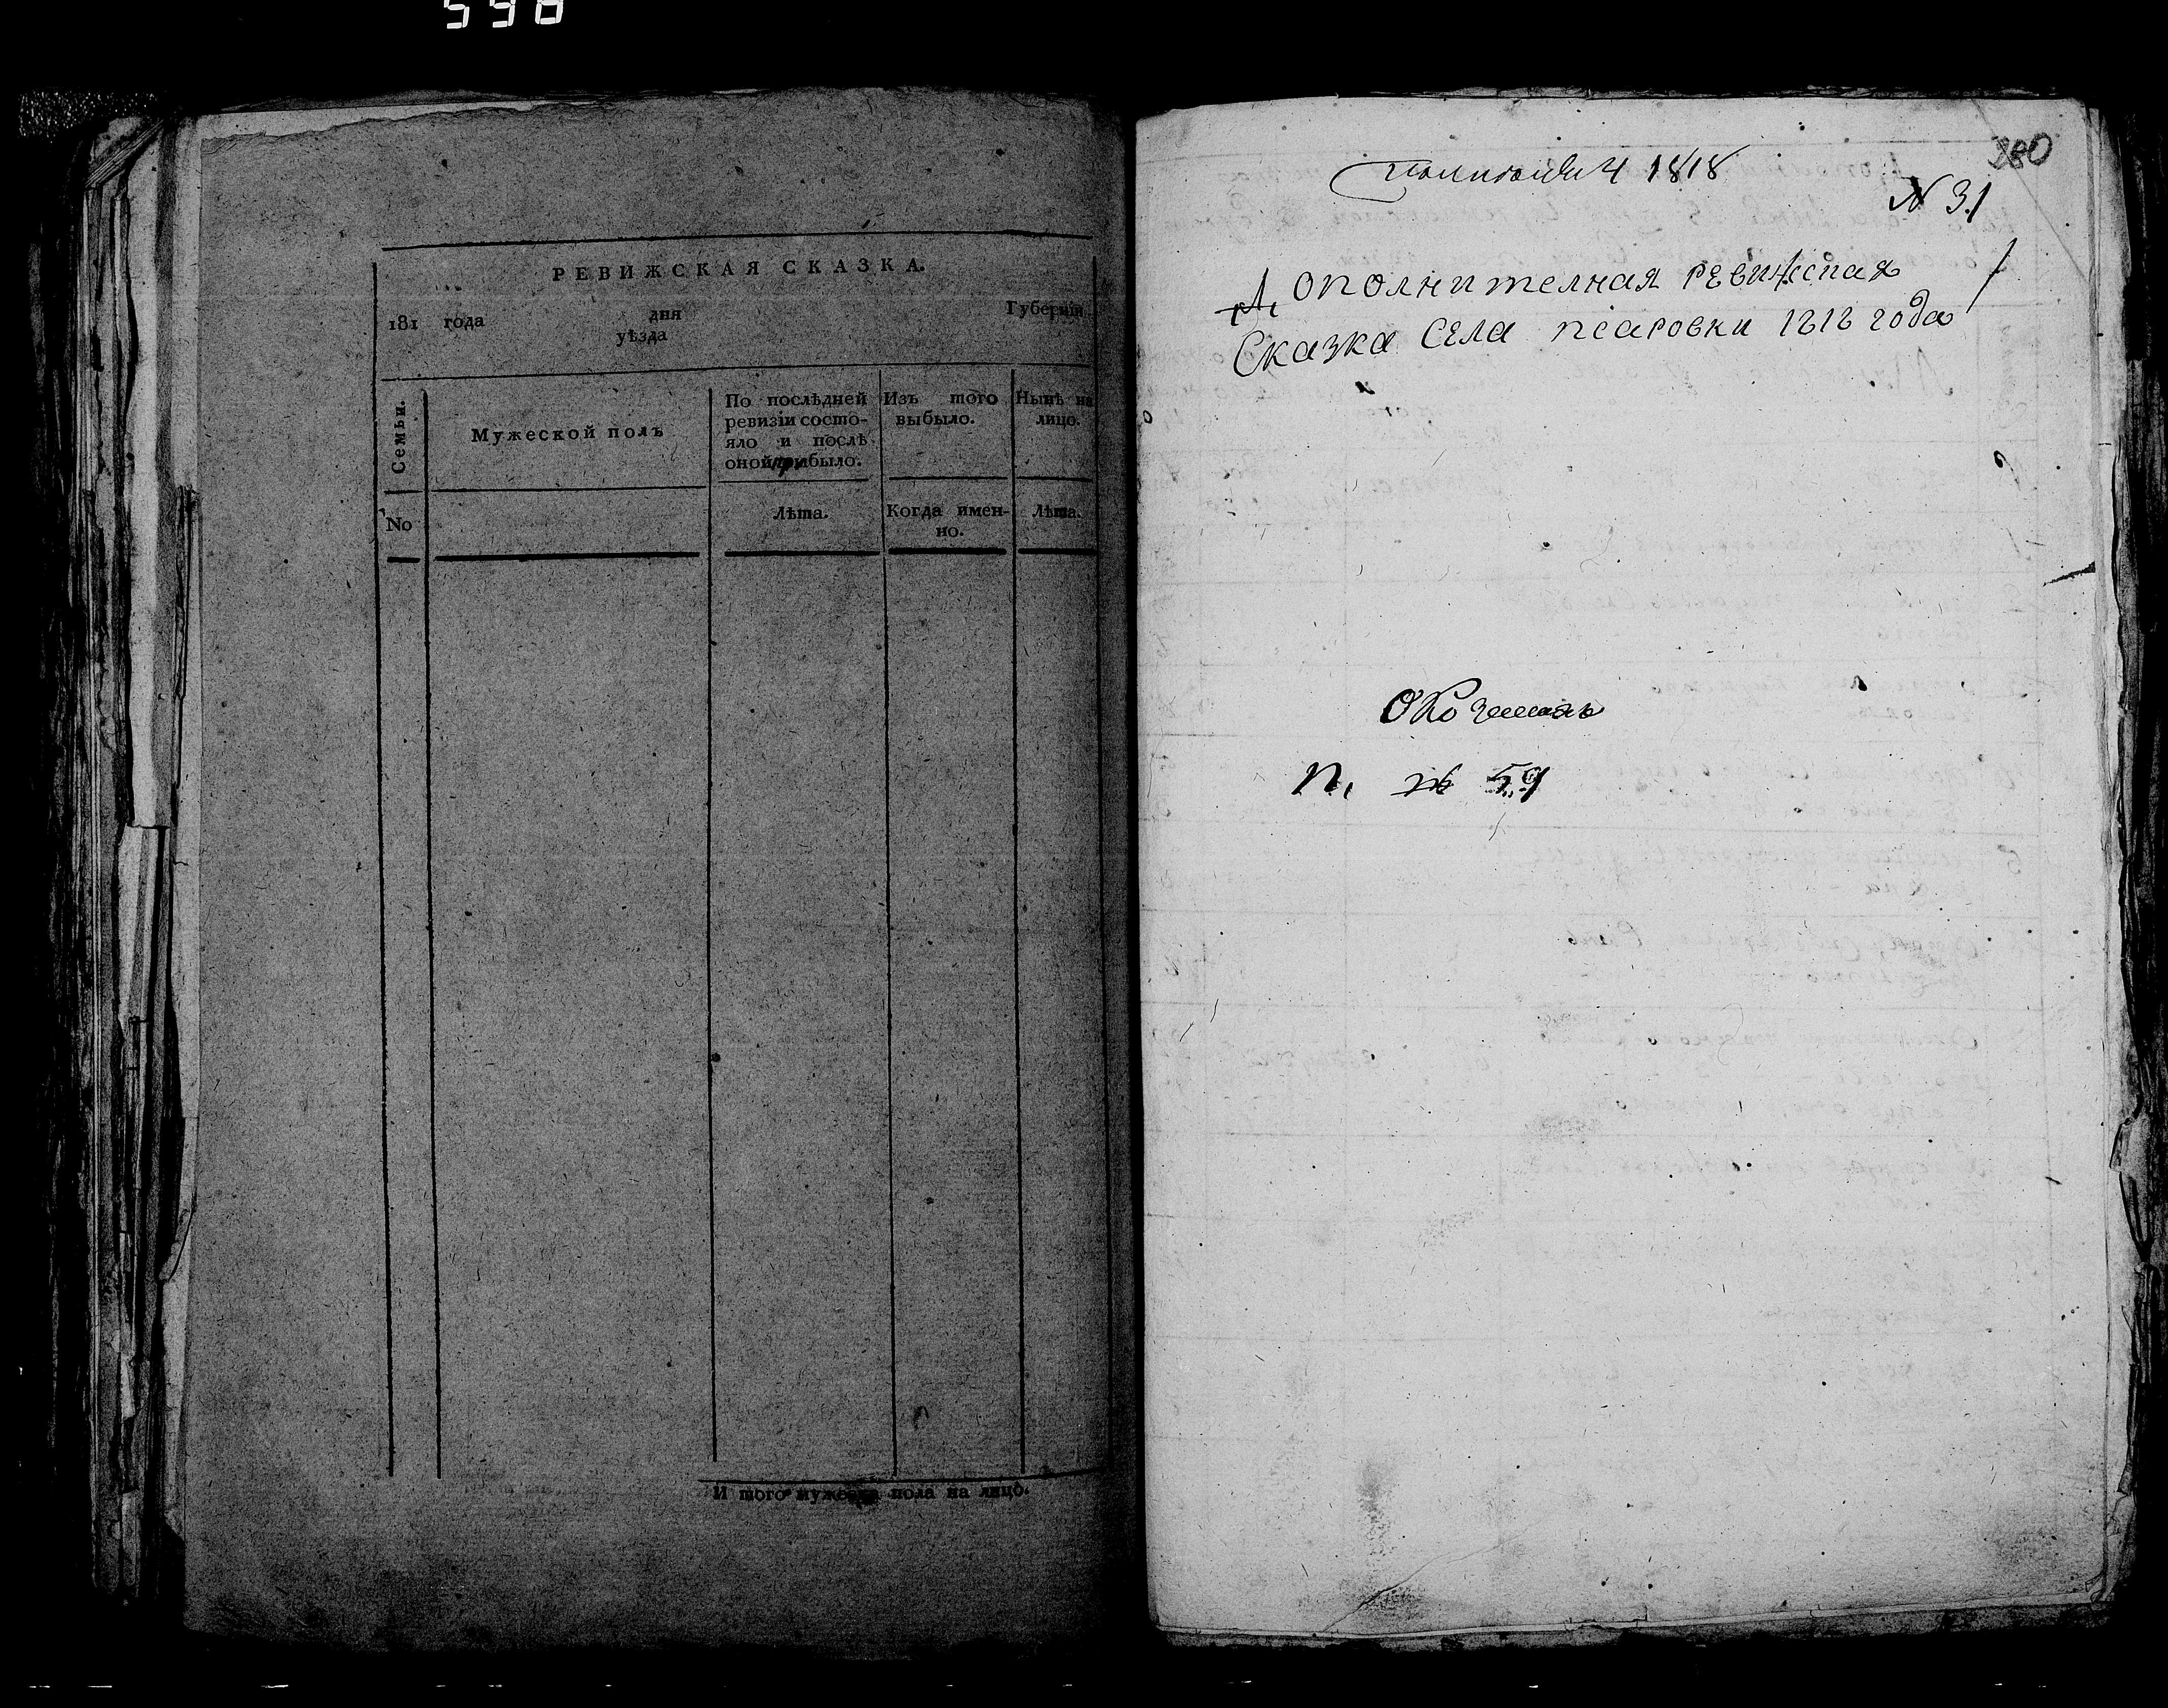 598
РЕВИЖСКАЯ СКАЗКА.
181 года дня Губерніи
уѣзда
Семьи.
Мужеской полъ
По послѣдней ревизіи состо-
яло и послѣ оной прибыло.
Изъ того выбыло.
Нынѣ на лицо.
No
Лѣта.
Когда имен-
но.
Лѣта.
И того мужеска пола на лицо.
380
1818
N 31
Дополнителная ревижская
Сказка Села псаровки 1818 года
п. № 59